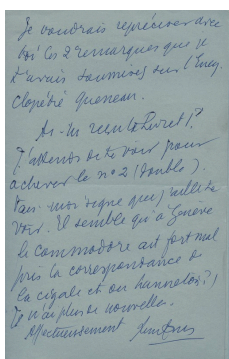 Je voudrais repréciser avec
toi les 2 remarques que je
t'avais soumises sur l'Ency-
clopédie Queneau.
As-tu reçu le livret ?
J'attends de te voir pour
achever le no 2 (double).
Fais-moi signe que j'aille te
voir. Il semble qu'à Genève
le commodore ait fort mal
pris la correspondance de
la cigale et du hanneton ? !
Je n'ai plus de nouvelles.
Affectueusement